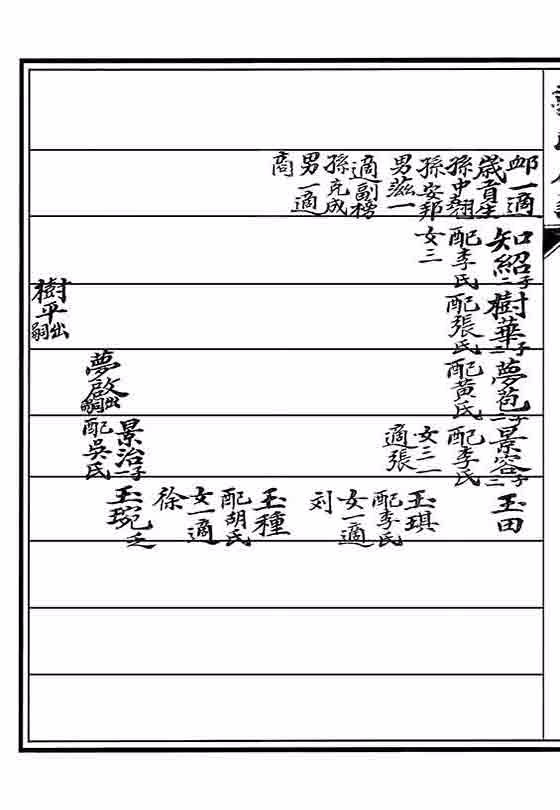 邮一適
歲貢生
孫中翹
孫安邦
男茲一
適副榜
孫克成
男一適
商
知紹二子
配李氏
女三
樹華二子
配張氏
樹平出嗣
夢苞二子
配黃氏
夢啟出嗣
景容三子
配李氏
女三一
適張
景治二子
配吳氏
玉田
玉琪
配李氏
女一適
刘
玉種
配胡氏
女一適
徐
玉琬乏